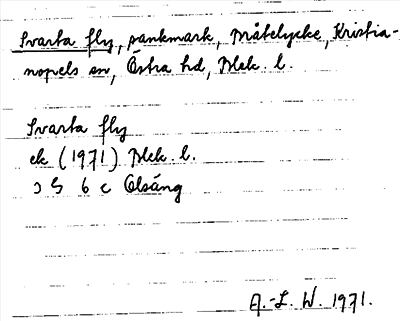 Svarta fly, sankmark, Måtelycke, Kristia-
nopels sn, Östra hd, Blek. l.
Svarta fly
ek (1971) Blek. l.
3 G 6 c Olsäng
A.-L. W. 1971.